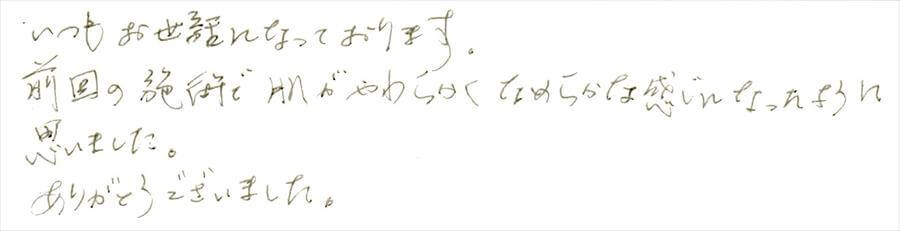 いつもお世話になっております。
前回の施術で肌がやわらかくなめらかな感じになったように
思いました。
ありがとうございました。